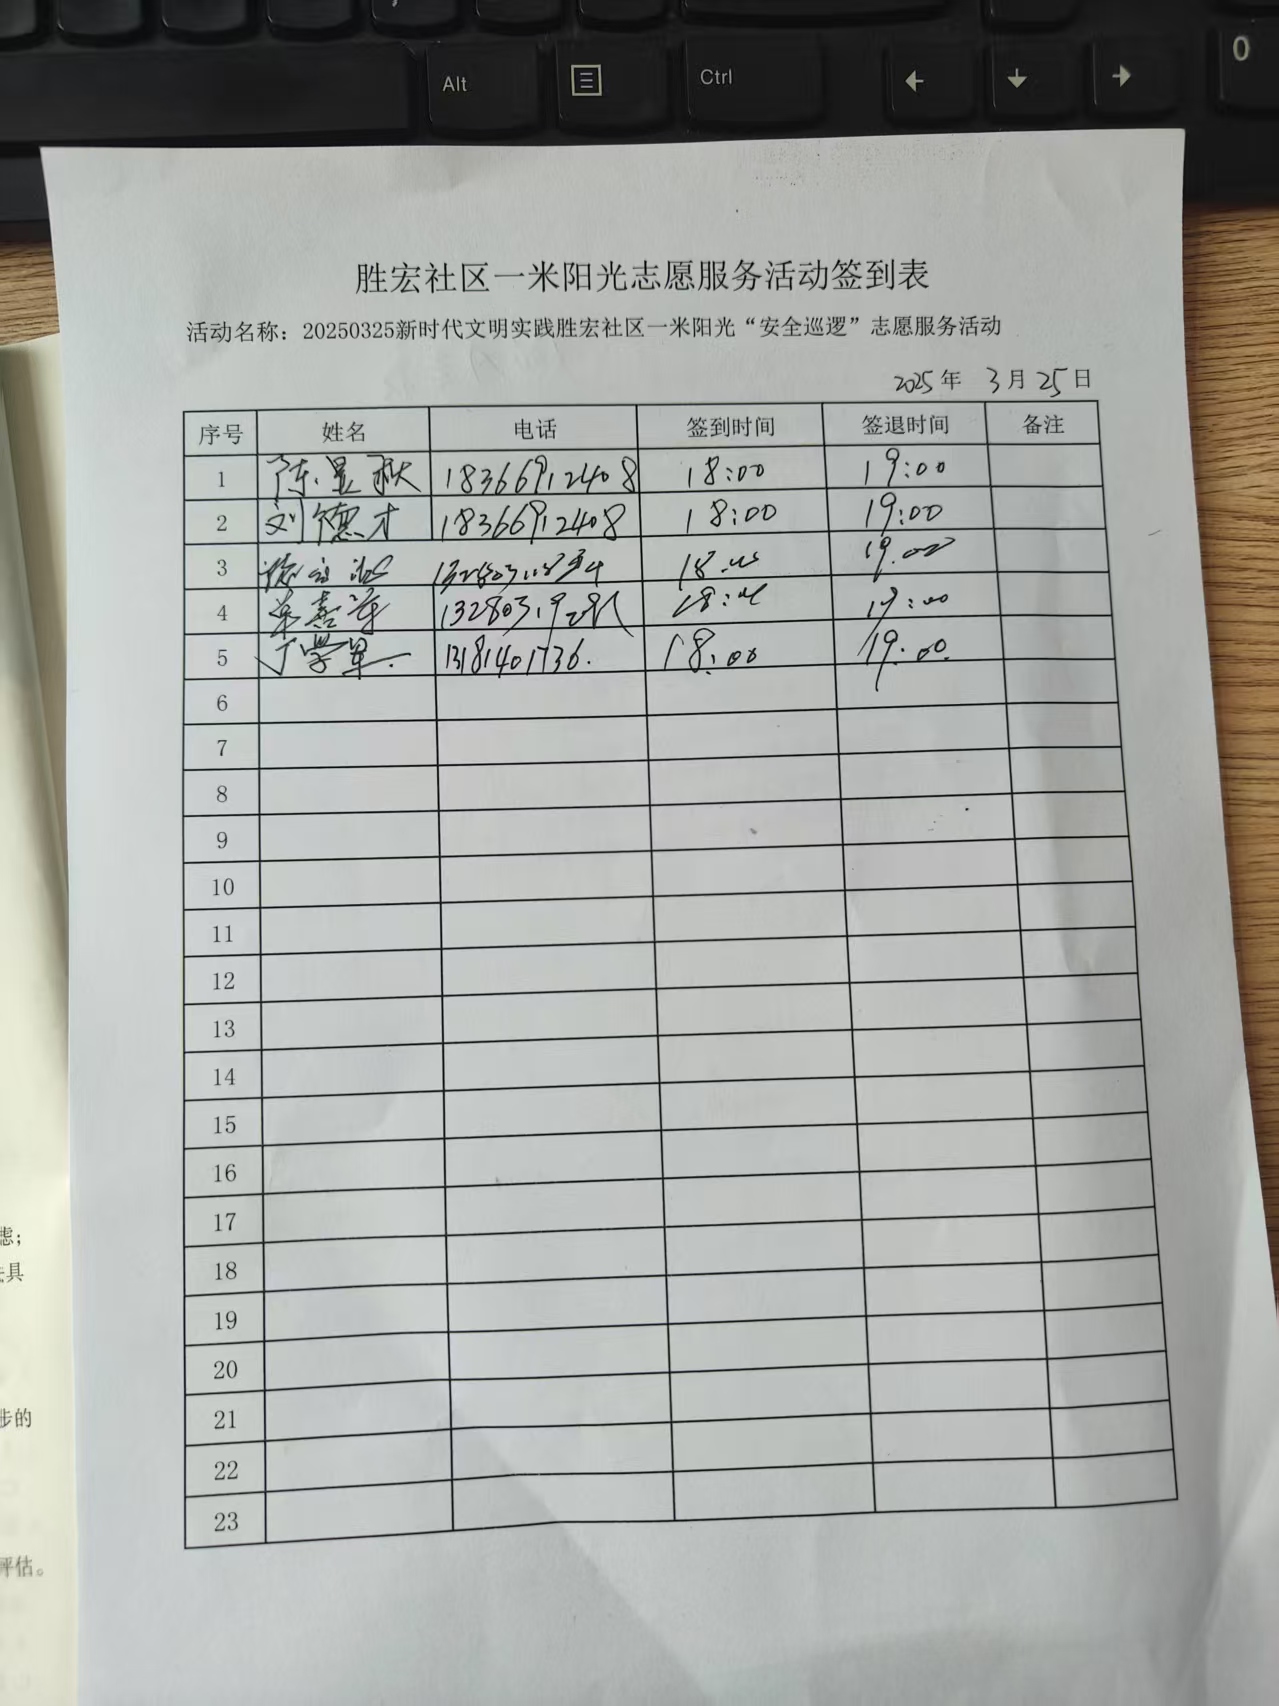 Alt
Ctrl
0
胜宏社区一米阳光志愿服务活动签到表
活动名称：20250325新时代文明实践胜宏社区一米阳光“安全巡逻”志愿服务活动
2025年 3月25日
序号 姓名 电话 签到时间 签退时间 备注
1 陈显秋 18366912408 18:00 19:00
2 刘德才 18366912408 18:00 19:00
3 19:00
4 18:00 19:00
5 丁学军 13181401736. 18:00 19:00
6
7
8
9
10
11
12
13
14
15
16
17
18
19
20
21
22
23
虑；
具
步的
评估。